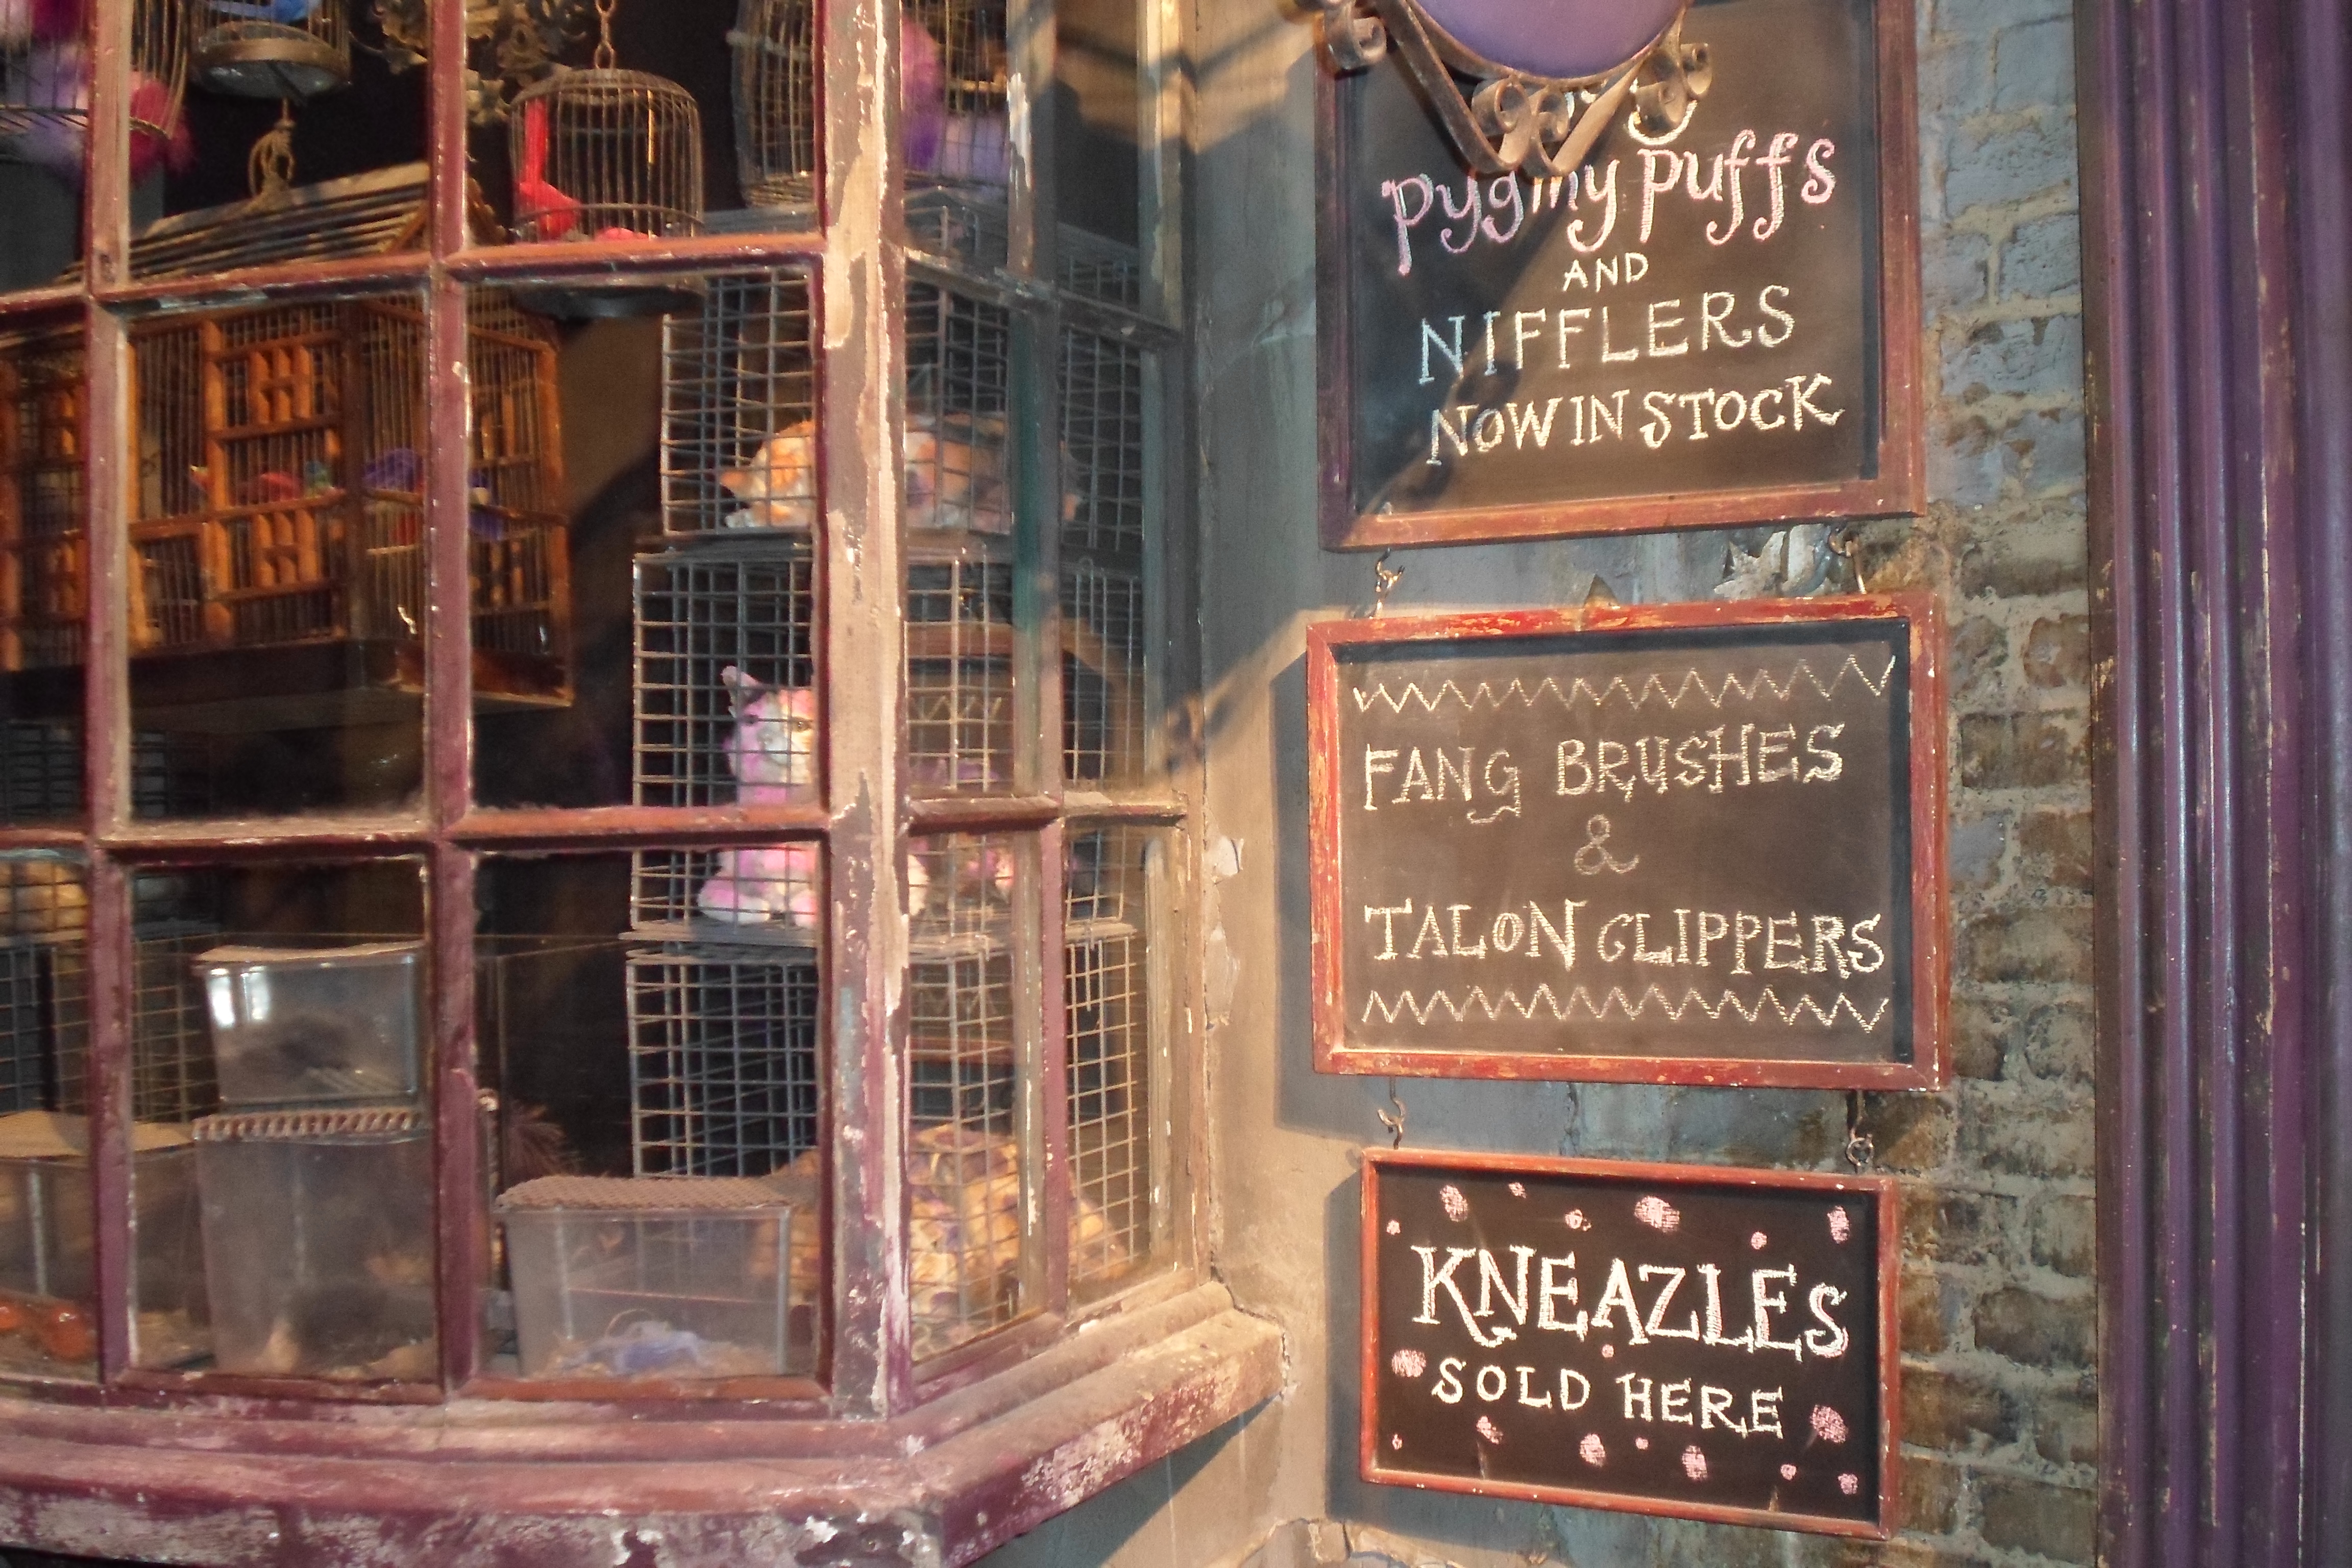 Pygmy Puffs
AND
NIFFLERS
NOW IN STOCK
FANG BRUSHES
&
TALON CLIPPERS
KNEAZLES
SOLD HERE